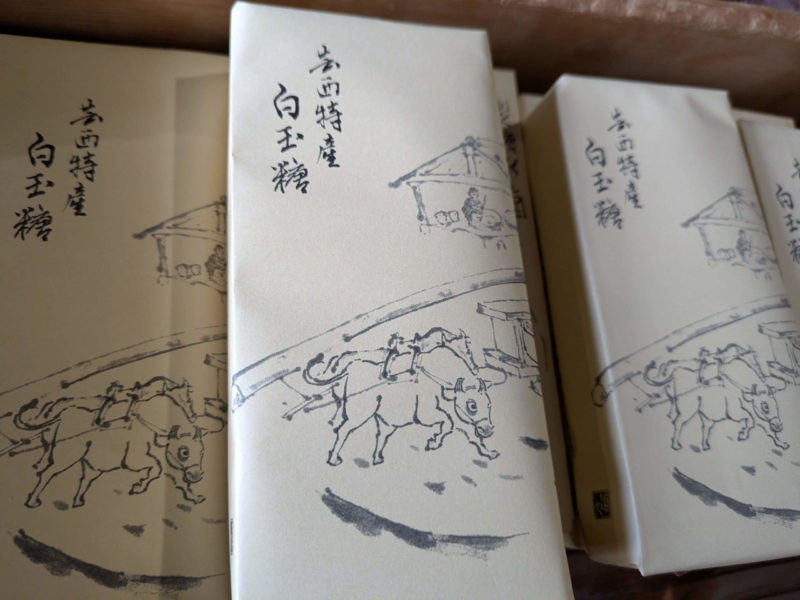 芸西特産
白玉糖
芸西特産
白玉糖
芸西特産
白玉糖
白玉糖